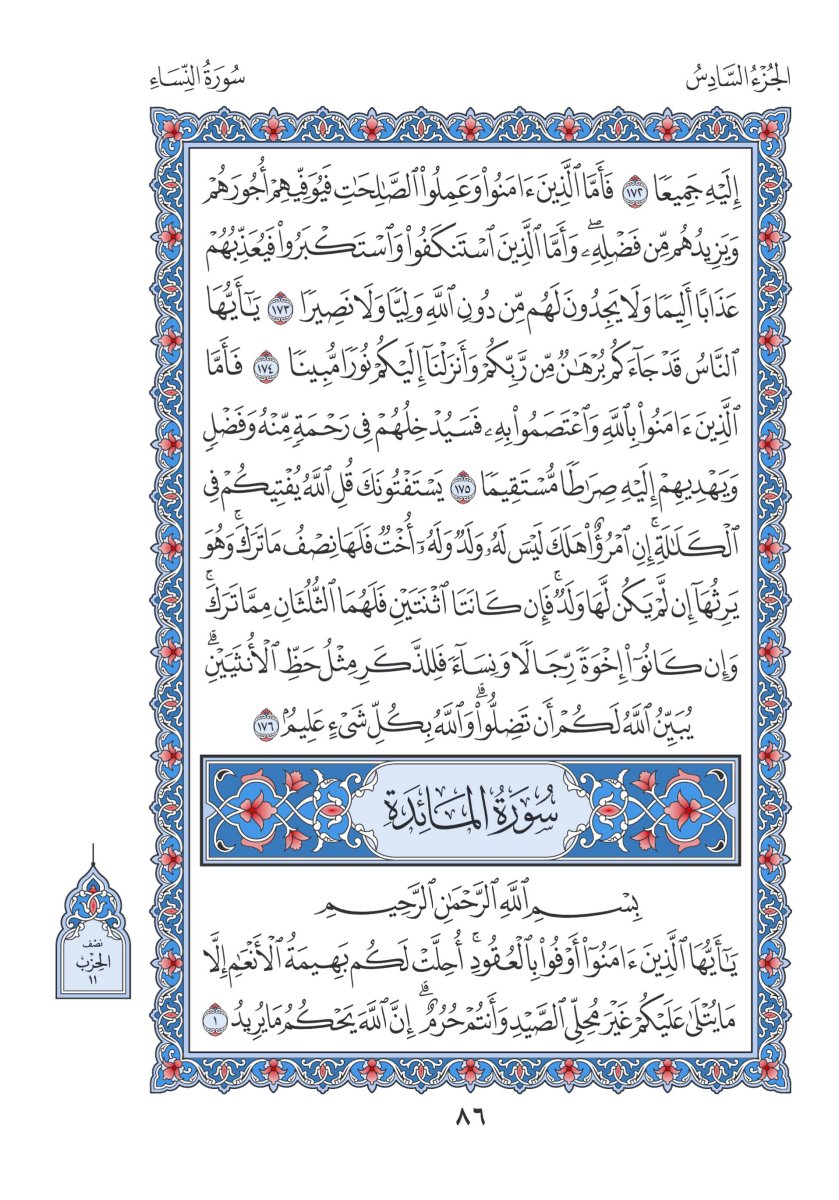 الجُزْءُ السَّادِسُ
سُورَةُ النِّسَاءِ
إِلَيْهِ جَمِيعٗا ١٧٢ فَأَمَّا ٱلَّذِينَ ءَامَنُواْ وَعَمِلُواْ ٱلصَّٰلِحَٰتِ فَيُوَفِّيهِمۡ أُجُورَهُمۡ
وَيَزِيدُهُم مِّن فَضۡلِهِۦۖ وَأَمَّا ٱلَّذِينَ ٱسۡتَنكَفُواْ وَٱسۡتَكۡبَرُواْ فَيُعَذِّبُهُمۡ
عَذَابًا أَلِيمٗا وَلَا يَجِدُونَ لَهُم مِّن دُونِ ٱللَّهِ وَلِيّٗا وَلَا نَصِيرٗا ١٧٣ يَٰٓأَيُّهَا
ٱلنَّاسُ قَدۡ جَآءَكُم بُرۡهَٰنٞ مِّن رَّبِّكُمۡ وَأَنزَلۡنَآ إِلَيۡكُمۡ نُورٗا مُّبِينٗا ١٧٤ فَأَمَّا
ٱلَّذِينَ ءَامَنُواْ بِٱللَّهِ وَٱعۡتَصَمُواْ بِهِۦ فَسَيُدۡخِلُهُمۡ فِي رَحۡمَةٖ مِّنۡهُ وَفَضۡلٖ
وَيَهۡدِيهِمۡ إِلَيۡهِ صِرَٰطٗا مُّسۡتَقِيمٗا ١٧٥ يَسۡتَفۡتُونَكَ قُلِ ٱللَّهُ يُفۡتِيكُمۡ فِي
ٱلۡكَلَٰلَةِۚ إِنِ ٱمۡرُؤٌاْ هَلَكَ لَيۡسَ لَهُۥ وَلَدٞ وَلَهُۥٓ أُخۡتٞ فَلَهَا نِصۡفُ مَا تَرَكَۚ وَهُوَ
يَرِثُهَآ إِن لَّمۡ يَكُن لَّهَا وَلَدٞۚ فَإِن كَانَتَا ٱثۡنَتَيۡنِ فَلَهُمَا ٱلثُّلُثَانِ مِمَّا تَرَكَۚ
وَإِن كَانُوٓاْ إِخۡوَةٗ رِّجَالٗا وَنِسَآءٗ فَلِلذَّكَرِ مِثۡلُ حَظِّ ٱلۡأُنثَيَيۡنِۗ
يُبَيِّنُ ٱللَّهُ لَكُمۡ أَن تَضِلُّواْۗ وَٱللَّهُ بِكُلِّ شَيۡءٍ عَلِيمُۢ ١٧٦
سُورَةُ المَائِدَةِ
بِسۡمِ ٱللَّهِ ٱلرَّحۡمَٰنِ ٱلرَّحِيمِ
يَٰٓأَيُّهَا ٱلَّذِينَ ءَامَنُوٓاْ أَوۡفُواْ بِٱلۡعُقُودِۚ أُحِلَّتۡ لَكُم بَهِيمَةُ ٱلۡأَنۡعَٰمِ إِلَّا
مَا يُتۡلَىٰ عَلَيۡكُمۡ غَيۡرَ مُحِلِّي ٱلصَّيۡدِ وَأَنتُمۡ حُرُمٌۗ إِنَّ ٱللَّهَ يَحۡكُمُ مَا يُرِيدُ ١
نصف
الحزب
١١
٨٦